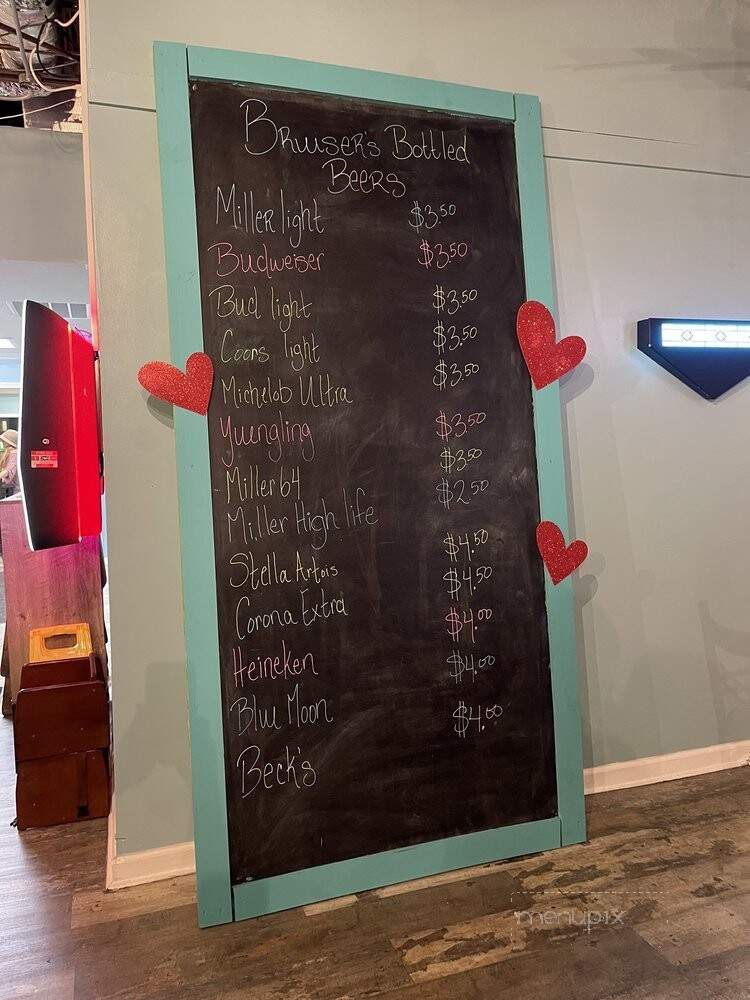 Bruiser's Bottled
Beers
Miller light $3.50
Budweiser $3.50
Bud light $3.50
Coors light $3.50
Michelob Ultra $3.50
Yuengling $3.50
Miller 64 $3.50
Miller High life $2.50
Stella Artois $4.50
Corona Extra $4.50
Heineken $4.00
Blue Moon $4.00
Beck's $4.00
menupix